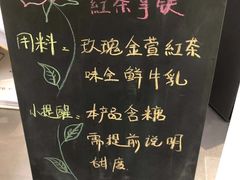 紅茶拿铁
用料：玫瑰金萱紅茶
味全鮮牛乳
小提醒：本产品含糖
需提前说明
甜度